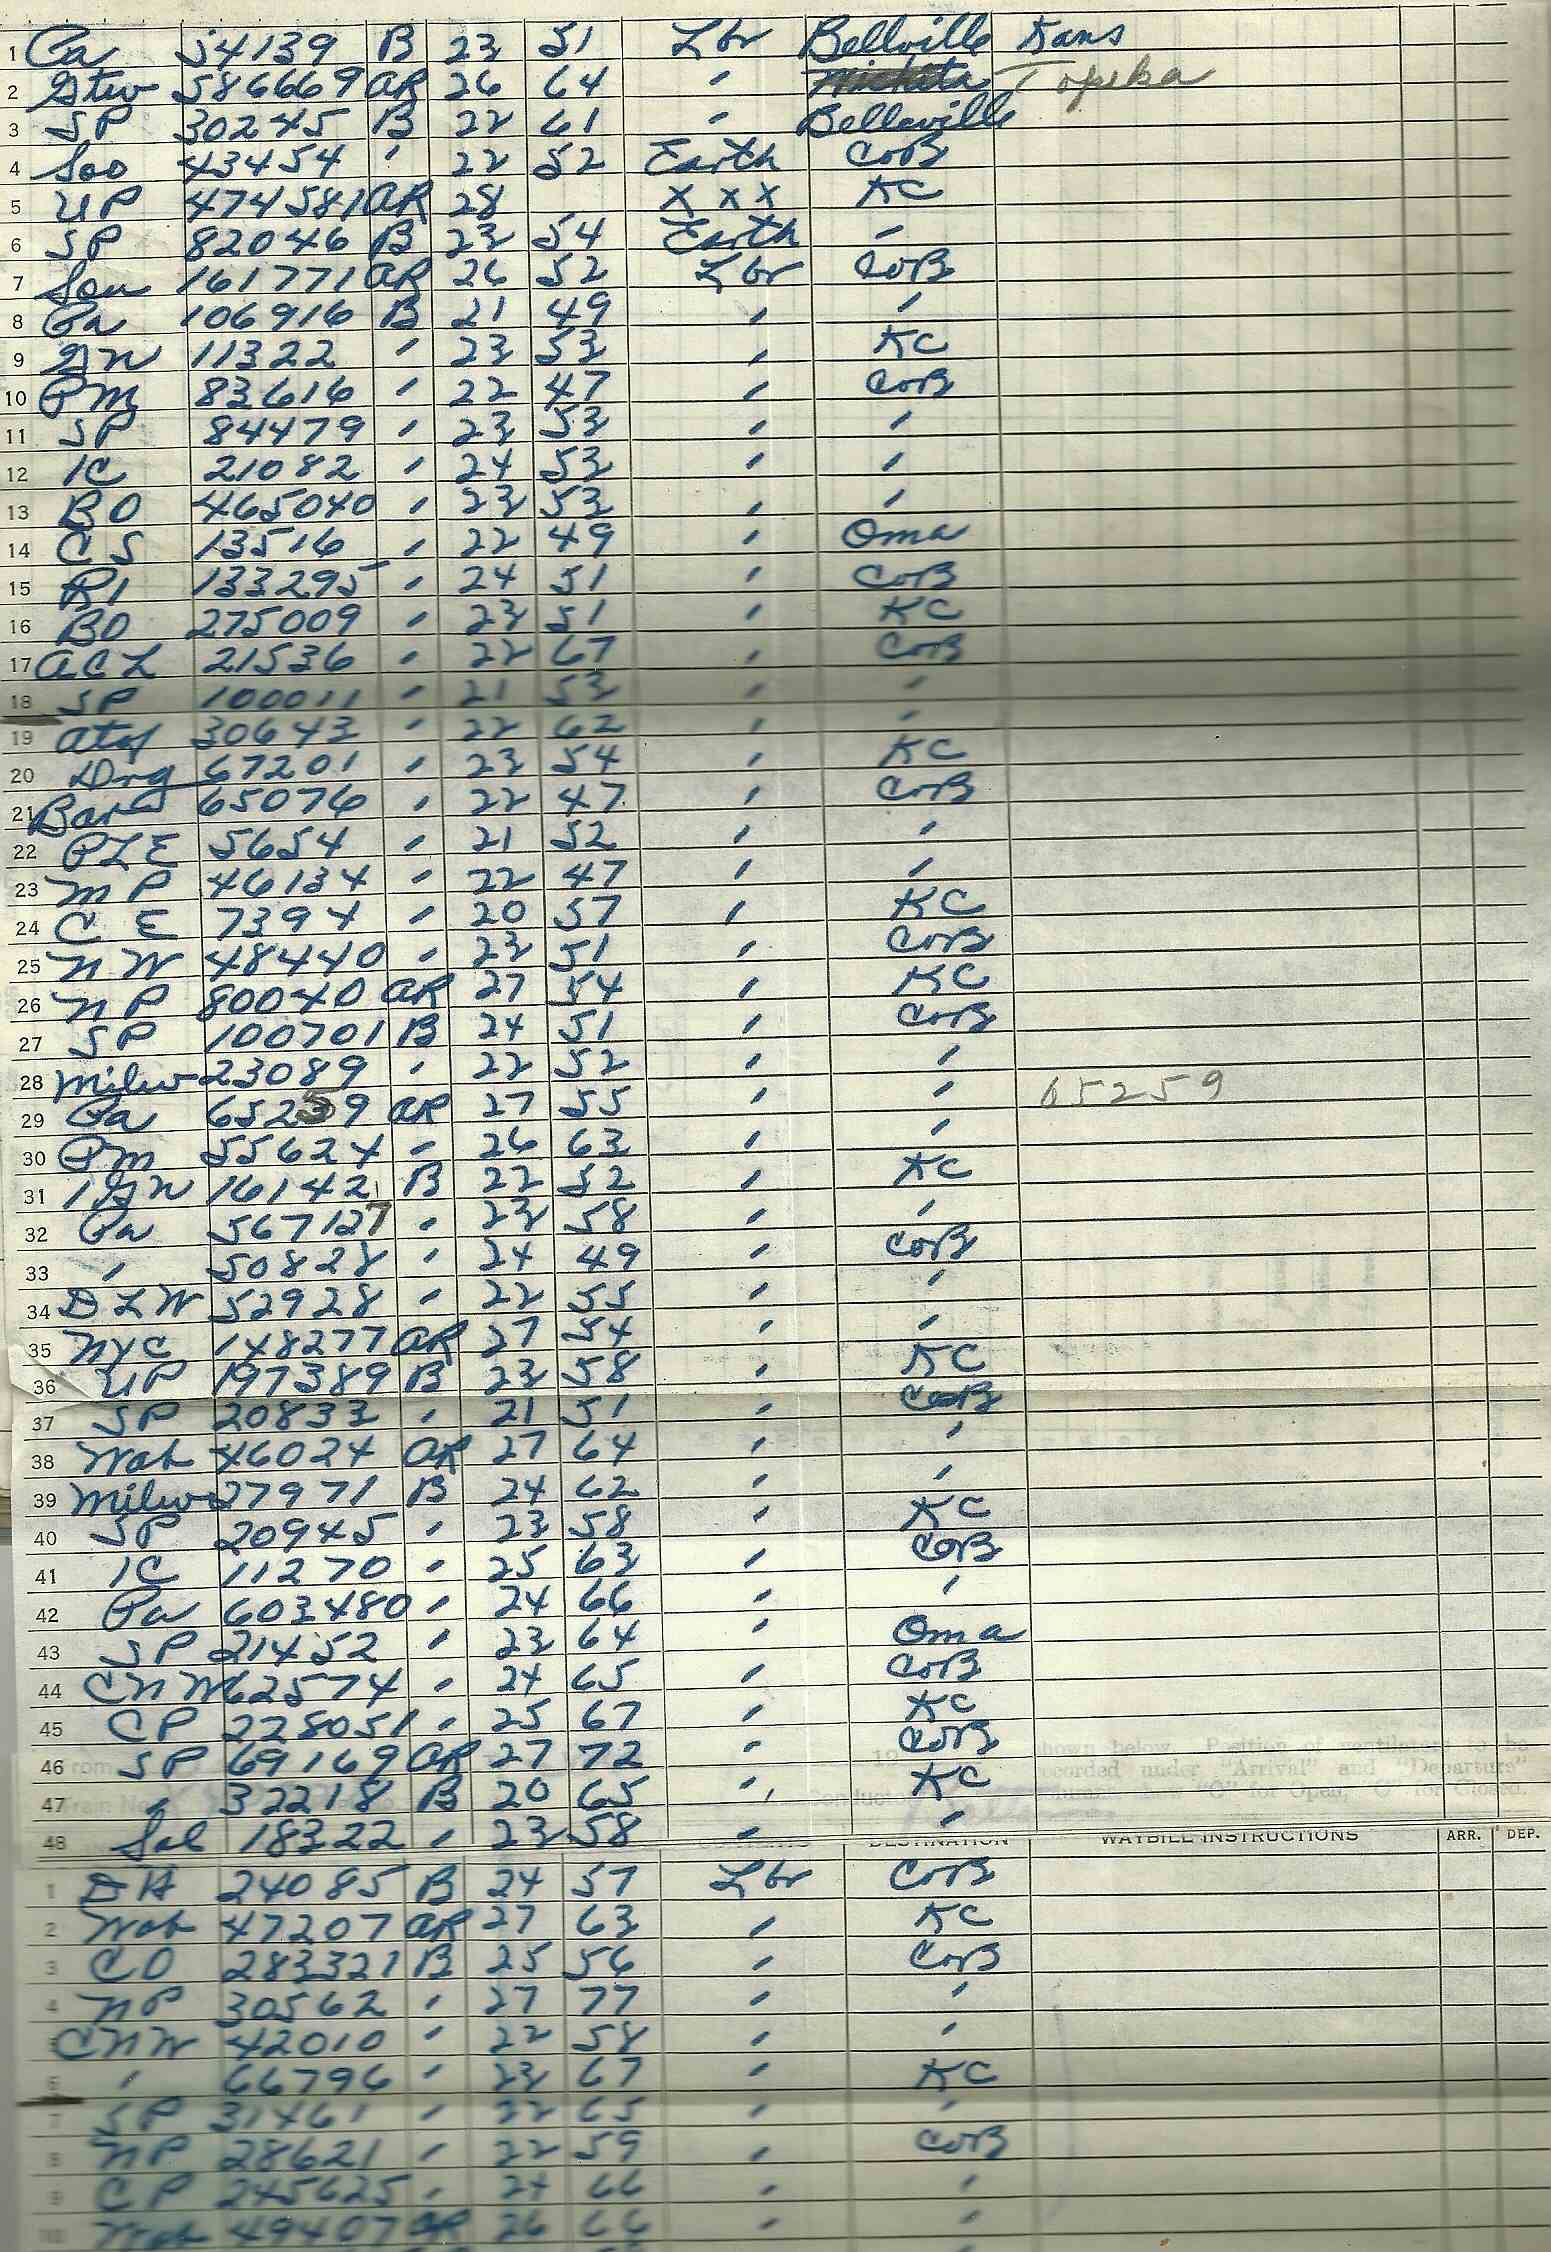 1 Pa 54139 B 23 51 Lbr Bellville Kans
2 Gtw 586669 AR 26 64 " Topeka
3 SP 30245 B 22 61 " Belleville
4 Soo 43454 " 22 52 Earth CoB
5 UP 474581 AR 28 X X X KC
6 SP 82046 B 23 54 Earth "
7 Sou 161771 AR 26 52 Lbr CoB
8 Pa 106916 B 21 49 " "
9 GN 11322 " 23 53 " KC
10 PM 83616 " 22 47 " CoB
11 SP 84479 " 23 53 " "
12 IC 21082 " 24 53 " "
13 BO 465040 " 23 53 " "
14 CS 13516 " 22 49 " Oma
15 RI 133295 " 24 51 " CoB
16 BO 275009 " 23 51 " KC
17 ACL 21536 " 22 67 " CoB
18 SP 100011 " 21 53 " "
19 Atsf 30643 " 22 62 " "
20 Drg 67201 " 23 54 " KC
21 Bar 65076 " 22 47 " CoB
22 PLE 5654 " 21 52 " "
23 MP 46134 " 22 47 " "
24 C E 7394 " 20 57 " KC
25 NW 48440 " 23 51 " CoB
26 NP 80040 AR 27 54 " KC
27 SP 100701 B 24 51 " CoB
28 Milw 23089 " 22 52 " "
29 Pa 65259 AR 27 55 " " 65259
30 PM 55624 " 26 63 " "
31 IGN 16142 B 22 52 " KC
32 Pa 567127 " 23 58 " "
33 " 50828 " 24 49 " CoB
34 DLW 52928 " 22 55 " "
35 NYC 148277 AR 27 54 " "
36 UP 197389 B 23 58 " KC
37 SP 20833 " 21 51 " CoB
38 Wab 46024 AR 27 64 " "
39 Milw 27971 B 24 62 " "
40 SP 20945 " 23 58 " KC
41 IC 11270 " 25 63 " CoB
42 Pa 603480 " 24 66 " "
43 SP 21452 " 23 64 " Oma
44 CNW 62574 " 24 65 " CoB
45 CP 228051 " 25 67 " KC
46 SP 69169 AR 27 72 " CoB
47 " 32218 B 20 65 " KC
48 Sal 18322 " 23 58 " "
DESTINATION WAYBILL INSTRUCTIONS ARR. DEP.
1 DH 24085 B 24 57 Lbr CoB
2 Wab 47207 AR 27 63 " KC
3 CO 283321 B 25 56 " CoB
4 NP 30562 " 27 77 " "
5 CNW 42010 " 22 58 " "
6 " 66796 " 23 67 " KC
7 SP 31461 " 22 65 " "
8 NP 28621 " 22 59 " CoB
9 CP 245625 " 24 66 " "
10 Wab 49407 AR 26 66 " "